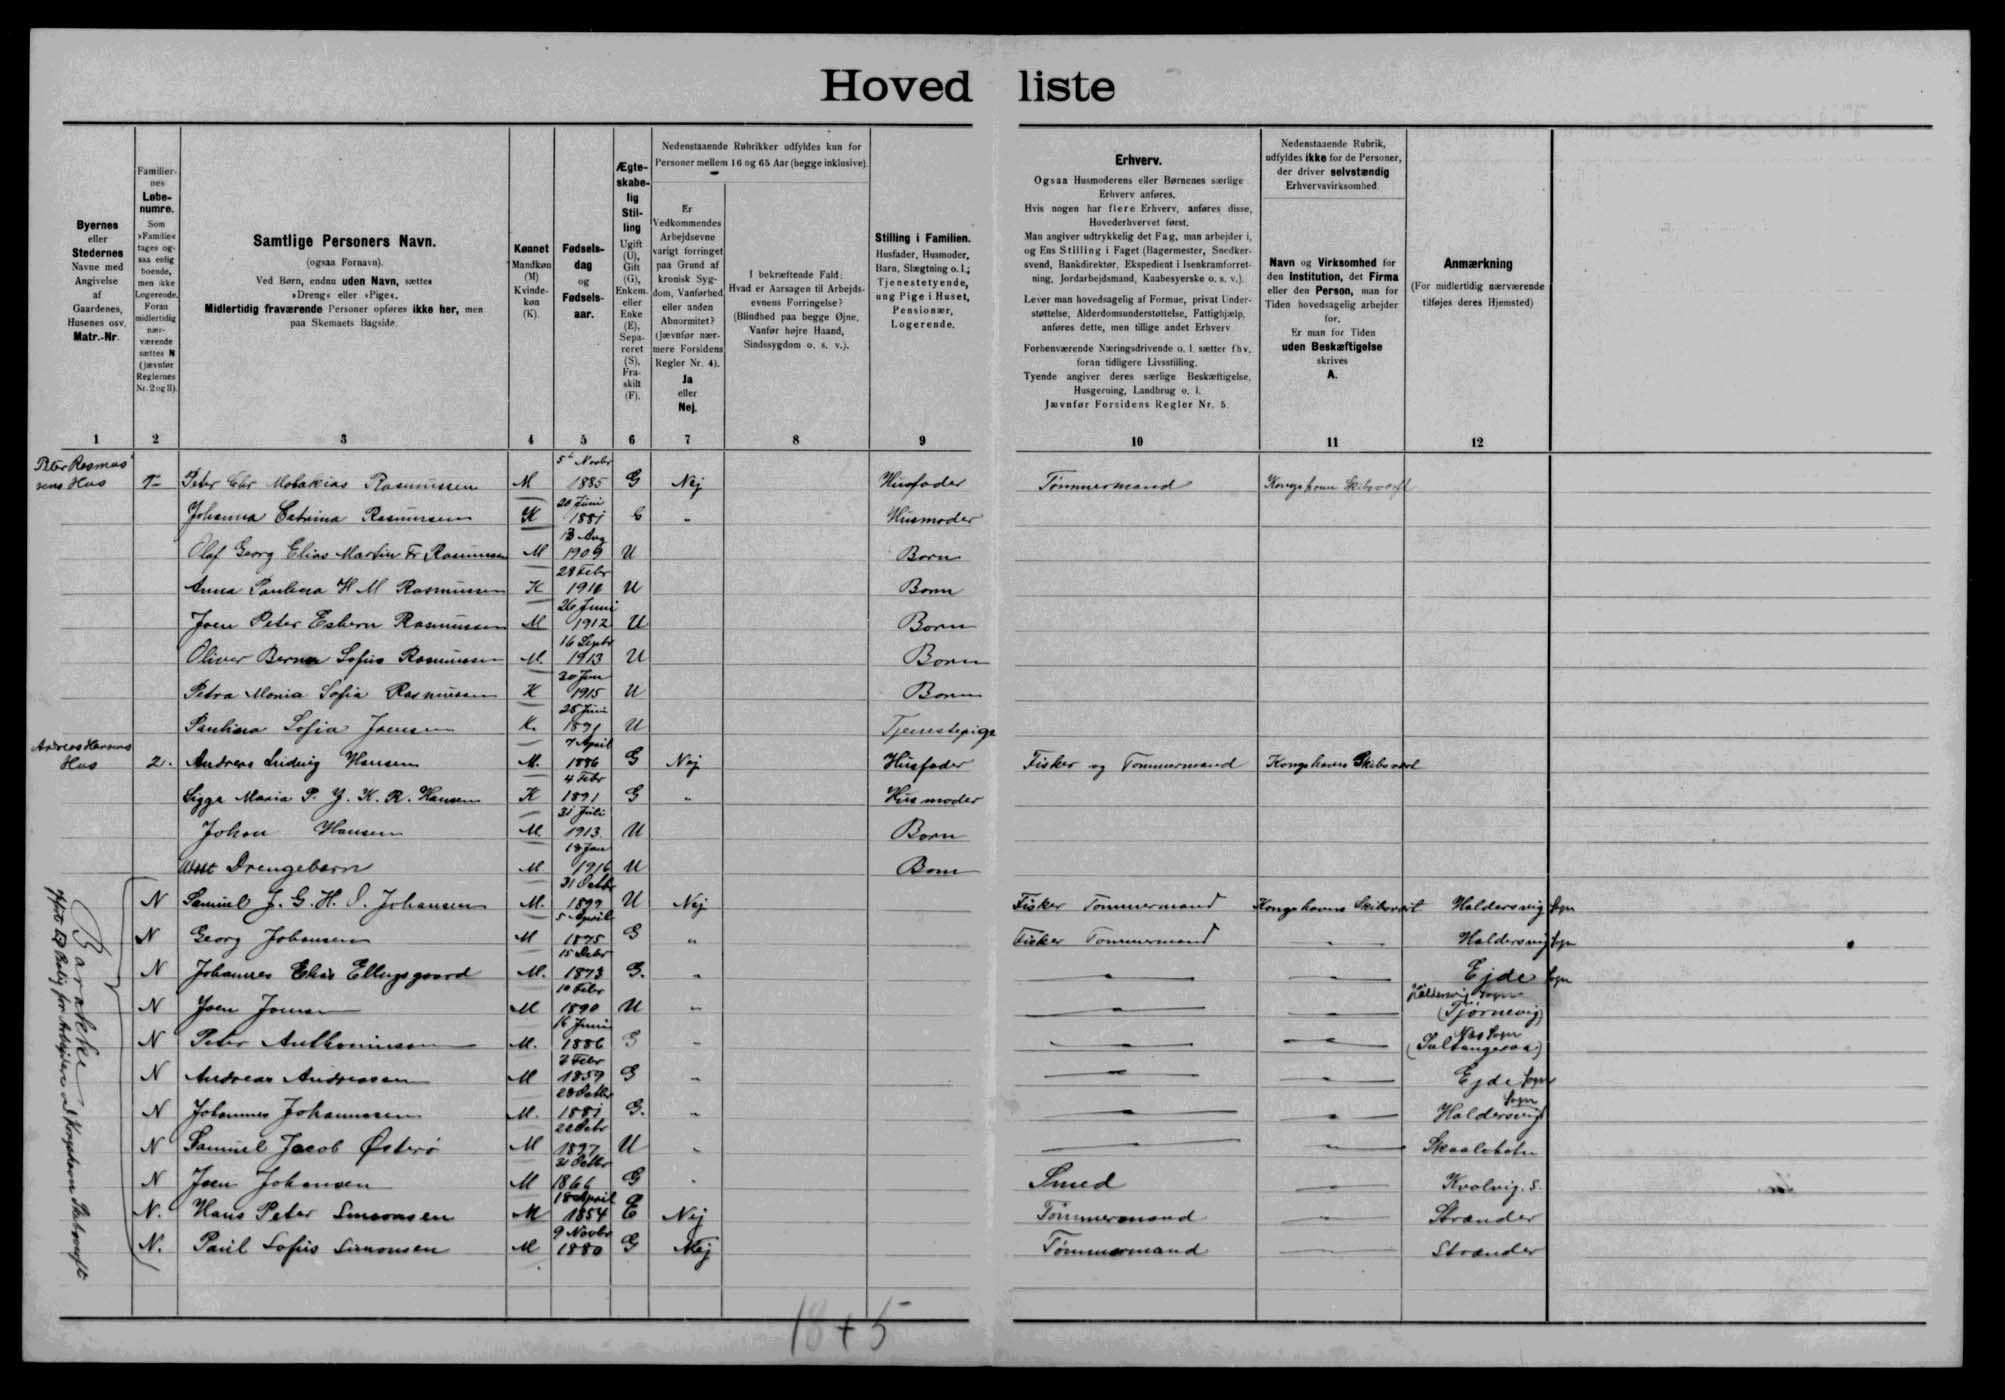 Hovedliste
Byernes
eller
Stedernes
Navne med
Angivelse
af
Gaardenes,
Husenes osv.
Matr.-Nr.
Familier-
nes
Løbe-
numre.
Som
»Familie«
tages og-
saa enlig
boende,
men ikke
Logerende.
Foran
midlertidig
nær-
værende
sættes N
(jævnfør
Reglernes
Nr. 2 og 3).
Samtlige Personers Navn.
(ogsaa Fornavn).
Ved Børn, endnu uden Navn, sættes
»Dreng« eller »Pige«.
Midlertidig fraværende Personer opføres ikke her, men
paa Skemaets Bagside.
Kønnet
Mandkøn
(M)
Kvinde-
køn
(K).
Fødsels-
dag
og
Fødsels-
aar.
Ægte-
skabe-
lig
Stil-
ling
Ugift
(U),
Gift
(G),
Enkem.
eller
Enke
(E),
Sepa-
reret
(S),
Fra-
skilt
(F).
Nedenstaaende Rubrikker udfyldes kun for
Personer mellem 16 og 65 Aar (begge inklusive).
Er
Vedkommendes
Arbejdsevne
varigt forringet
paa Grund af
kronisk Syg-
dom, Vanførhed
eller anden
Abnormitet?
(Jævnfør nær-
mere Forsidens
Regler Nr. 4).
Ja
eller
Nej.
I bekræftende Fald:
Hvad er Aarsagen til Arbejds-
evnens Forringelse?
(Blindhed paa begge Øjne,
Vanfør højre Haand,
Sindssygdom o. s. v.).
Stilling i Familien.
Husfader, Husmoder,
Barn, Slægtning o. l.;
Tjenestetyende,
ung Pige i Huset,
Pensionær,
Logerende.
Erhverv.
Ogsaa Husmoderens eller Børnenes særlige
Erhverv anføres.
Hvis nogen har flere Erhverv, anføres disse,
Hovederhvervet først.
Man angiver udtrykkelig det Fag, man arbejder i,
og Ens Stilling i Faget (Bagermester, Snedker-
svend, Bankdirektør, Ekspedient i Isenkramforret-
ning, Jordarbejdsmand, Kaabesyerske o. s. v.).
Lever man hovedsagelig af Formue, privat Under-
støttelse, Alderdomsunderstøttelse, Fattighjælp,
anføres dette, men tillige andet Erhverv
Forhenværende Næringsdrivende o. l. sætter fhv.
foran tidligere Livsstilling.
Tyende angiver deres særlige Beskæftigelse,
Husgerning, Landbrug o. l.
Jævnfør Forsidens Regler Nr. 5.
Nedenstaaende Rubrik,
udfyldes ikke for de Personer,
der driver selvstændig
Erhvervsvirksomhed.
Navn og Virksomhed for
den Institution, det Firma
eller den Person, man for
Tiden hovedsagelig arbejder
for.
Er man for Tiden
uden Beskæftigelse
skrives
A.
Anmærkning
(For midlertidig nærværende
tilføjes deres Hjemsted)
1 2 3 4 5 6 7 8 9 10 11 12
Peter Rasmus
sens Hus 1 Peter Chr Matakias Rasmussen M 5 Novbr 1885 G Nej Husfader Tømmermand Kongshavn Skibsværft
Johanna Catrina Rasmussen K 20 Juni 1881 G " Husmoder
Olaf Georg Elias Martin Fr Rasmussen M 13 Aug 1909 U Barn
Anna Paulina H M Rasmussen K 28 Febr 1910 U Barn
Joen Peter Esbern Rasmussen M 26 Juni 1912 U Barn
Oliver Berner Sofus Rasmussen M. 16 Septbr 1913 U Barn
Petra Monia Sofia Rasmussen K 1915 U Barn
Paulina Sofia Joensen K. 25 Juni 1891 U Tjenestepige
Andreas Hansens
Hus 2. Andreas Ludvig Hansen M. 7 April 1886 G Nej Husfader Fisker og Tømmermand Kongshavns Skibsværft
Sigga Maria P. J. K. R. Hansen K 4 Febr 1891 G " Husmoder
Johan Hansen M. 31 Juli 1913. U Barn
Drengebarn M 18 Jan 1916 U Barn
N Samuel J. G. H. D. Johansen M. 31 Octbr 1899 U Nej Fisker Tømmermand Kongshavns Skibsværft Haldersvig Sogn
N Georg Johansen M 5 April 1875 G " Fisker Tømmermand " Haldersvig Sogn
N Johannes Elias Ellingsgaard M. 15 1873 G. " " " Ejde Sogn
N Joen Joensen M 10 Febr 1890 U " " " Haldersvig Sogn (Tjørnevig)
N Peter Anthoniussen M. 16 Juni 1886 G " " " Næs Sogn (Saltangeraa)
N Andreas Andreassen M Febr 1859 G " " " Ejde Sogn
N Johannes Johannesen M. 28 Octbr 1881 G. " " " Haldersvig Sogn
N Samuel Jacob Østerø M 1897 U " Skaalebotn
N Joen Johansen M 31 Octbr 1866 G " Smed Kvalvig. S.
N. Hans Peter Simonsen M 18 April 1854 E Nej Tømmermand Strænder
N. Paul Sofus Simonsen M 9 Novbr 1880 G Nej Tømmermand Strænder
Barakke
Bolig for Arbejdere v Kongshavn Skibsværft
18 + 5